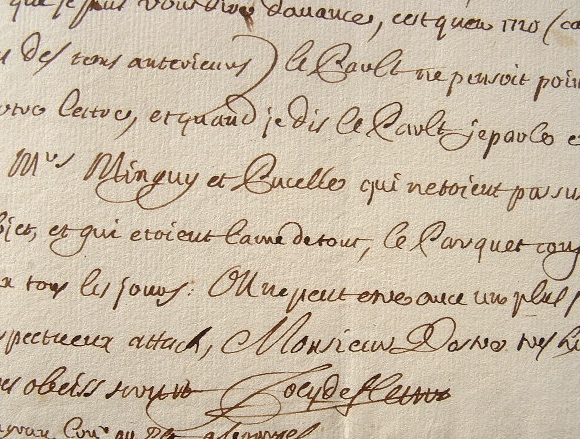 que je puis vous dire d'avance, c'est qu'en 1720 (ca
des tems anterieurs) le Pault ne pensoit poin
votre lettre, et quand je dis le Pault je parle
Mrs Minguy et Pucelle qui n'etoient pas su
bjet, et qui etoient l'ame de tout, le Parquet
tous les jours: On ne peut etre avec un plus
spectueux attach, Monsieur Votre tres h
obeiss servit Joly de fleury